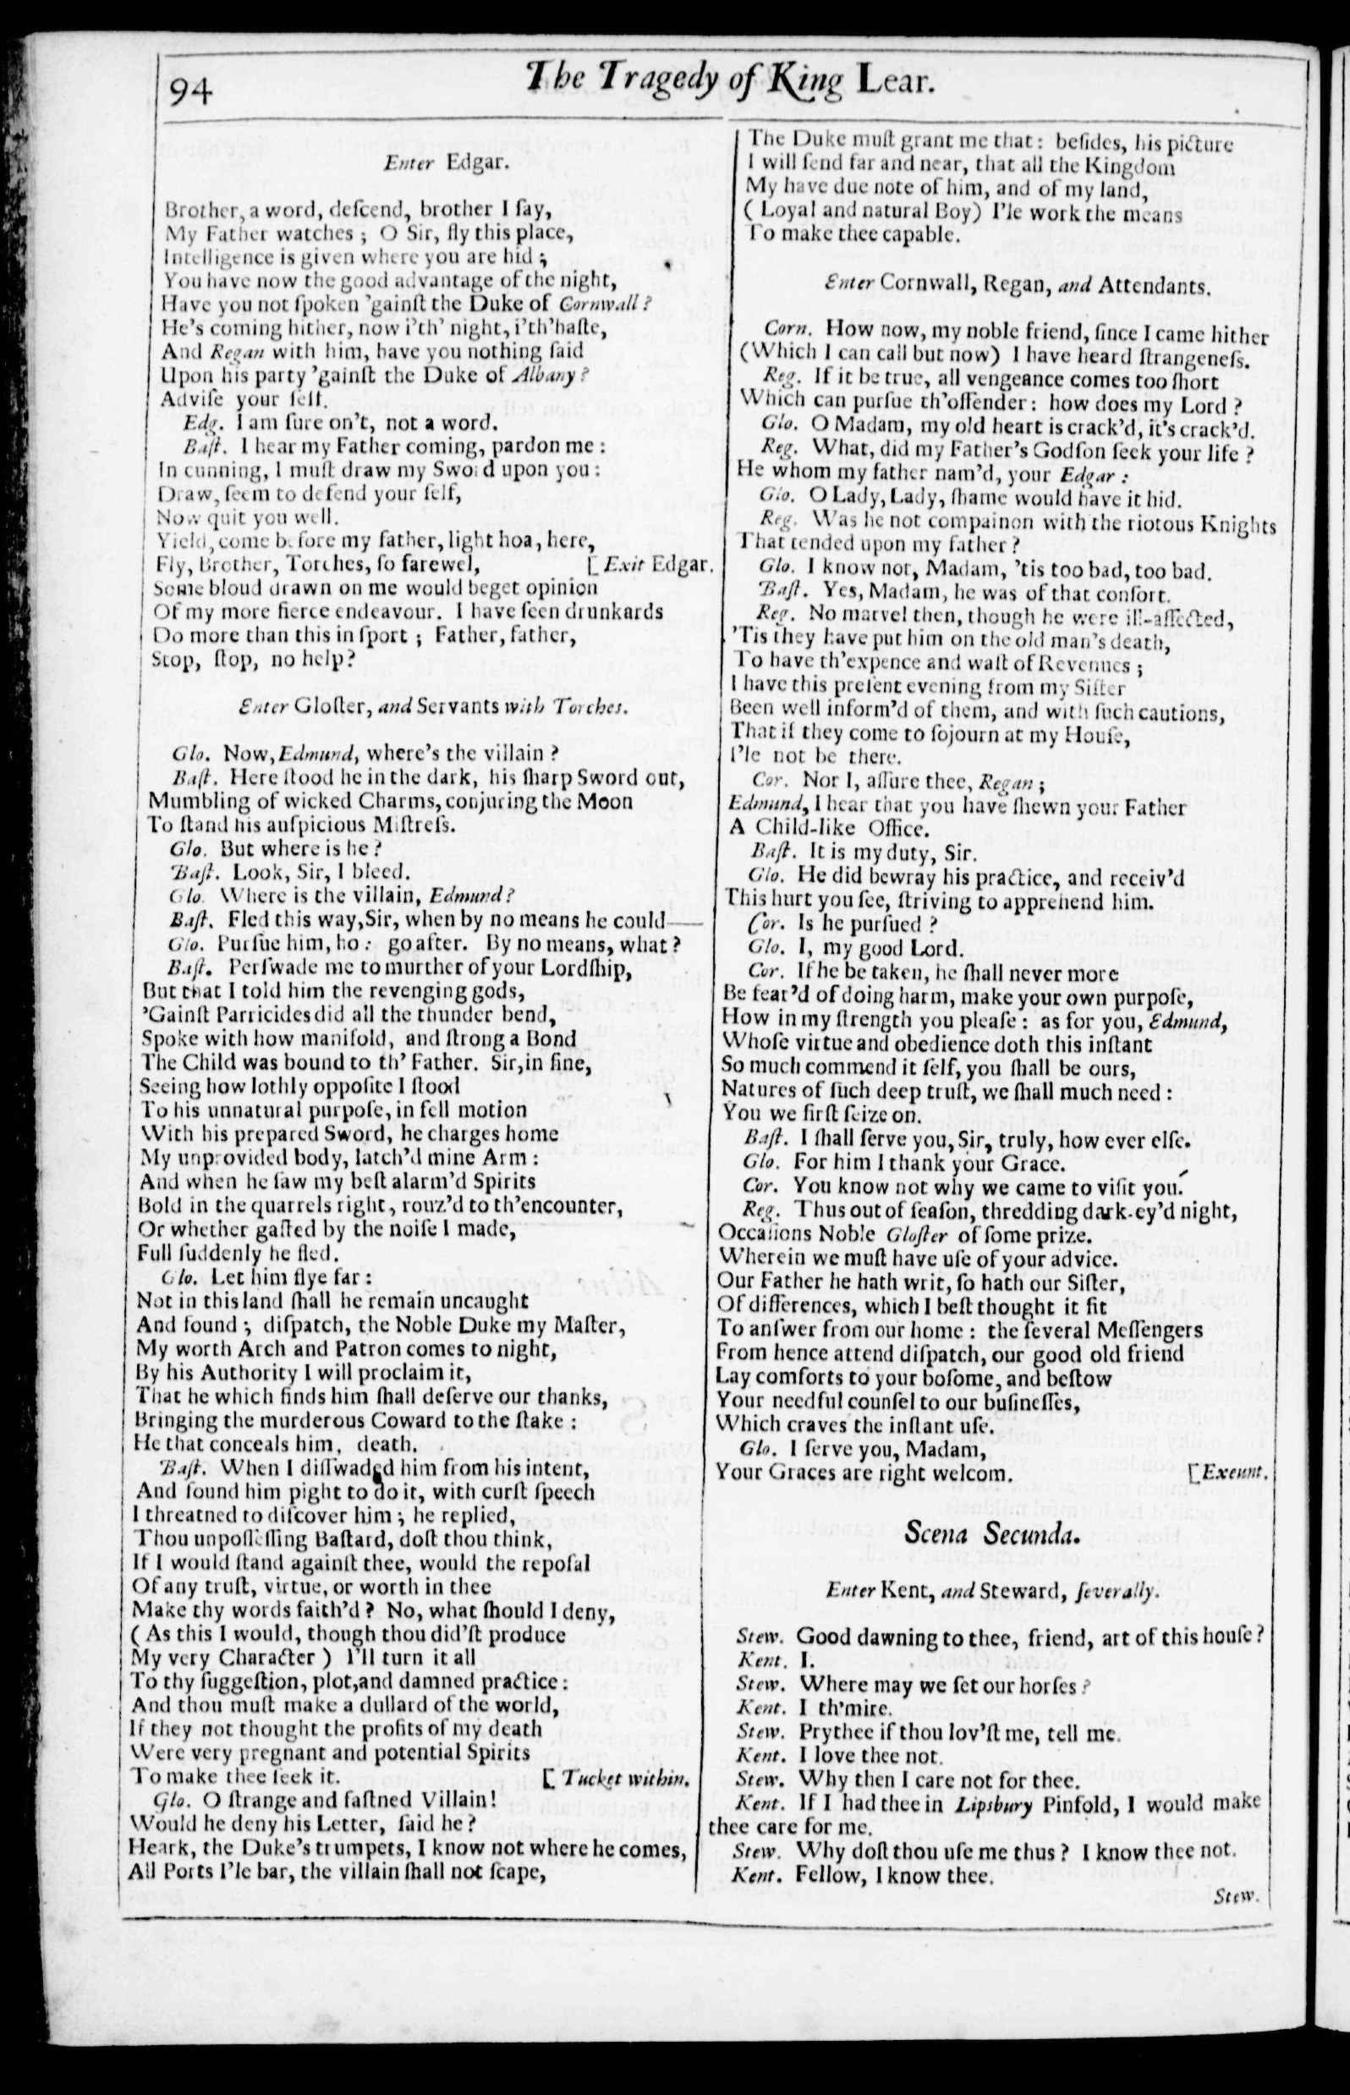 94
The Tragedy of King Lear.
Enter Edgar.
Brother, a word, deſcend, brother I ſay,
My Father watches ; O Sir, fly this place,
Intelligence is given where you are hid ;
You have now the good advantage of the night,
Have you not ſpoken 'gainſt the Duke of Cornwall ?
He's coming hither, now i'th' night, i'th'haſte,
And Regan with him, have you nothing ſaid
Upon his party 'gainſt the Duke of Albany ?
Adviſe your ſelf.
Edg. I am ſure on't, not a word.
Baſt. I hear my Father coming, pardon me :
In cunning, I muſt draw my Sword upon you :
Draw, ſeem to defend your ſelf,
Now quit you well.
Yield, come before my father, light hoa, here,
Fly, Brother, Torches, ſo farewel, [ Exit Edgar.
Some bloud drawn on me would beget opinion
Of my more fierce endeavour. I have ſeen drunkards
Do more than this in ſport ; Father, father,
Stop, ſtop, no help?
Enter Gloſter, and Servants with Torches.
Glo. Now, Edmund, where's the villain ?
Baſt. Here ſtood he in the dark, his ſharp Sword out,
Mumbling of wicked Charms, conjuring the Moon
To ſtand his auſpicious Miſtreſs.
Glo. But where is he ?
Baſt. Look, Sir, I bleed.
Glo. Where is the villain, Edmund?
Baſt. Fled this way, Sir, when by no means he could——
Glo. Purſue him, ho : go after. By no means, what ?
Baſt. Perſwade me to murther of your Lordſhip,
But that I told him the revenging gods,
'Gainſt Parricides did all the thunder bend,
Spoke with how manifold, and ſtrong a Bond
The Child was bound to th' Father. Sir, in fine,
Seeing how lothly oppoſite I ſtood
To his unnatural purpoſe, in fell motion
With his prepared Sword, he charges home
My unprovided body, latch'd mine Arm :
And when he ſaw my beſt alarm'd Spirits
Bold in the quarrels right, rouz'd to th'encounter,
Or whether gaſted by the noiſe I made,
Full ſuddenly he fled.
Glo. Let him flye far :
Not in this land ſhall he remain uncaught
And found ; diſpatch, the Noble Duke my Maſter,
My worth Arch and Patron comes to night,
By his Authority I will proclaim it,
That he which finds him ſhall deſerve our thanks,
Bringing the murderous Coward to the ſtake :
He that conceals him, death.
Baſt. When I diſſwaded him from his intent,
And found him pight to do it, with curſt ſpeech
I threatned to diſcover him ; he replied,
Thou unpoſſeſſing Baſtard, doſt thou think,
If I would ſtand againſt thee, would the repoſal
Of any truſt, virtue, or worth in thee
Make thy words faith'd ? No, what ſhould I deny,
( As this I would, though thou did'ſt produce
My very Character ) I'll turn it all
To thy ſuggeſtion, plot, and damned practice :
And thou muſt make a dullard of the world,
If they not thought the profits of my death
Were very pregnant and potential Spirits
To make thee ſeek it. [ Tucket within.
Glo. O ſtrange and faſtned Villain!
Would he deny his Letter, ſaid he ?
Heark, the Duke's trumpets, I know not where he comes,
All Ports I'le bar, the villain ſhall not ſcape,
The Duke muſt grant me that : beſides, his picture
I will ſend far and near, that all the Kingdom
My have due note of him, and of my land,
( Loyal and natural Boy) I'le work the means
To make thee capable.
Enter Cornwall, Regan, and Attendants.
Corn. How now, my noble friend, ſince I came hither
(Which I can call but now) I have heard ſtrangeneſs.
Reg. If it be true, all vengeance comes too ſhort
Which can purſue th'offender : how does my Lord ?
Glo. O Madam, my old heart is crack'd, it's crack'd.
Reg. What, did my Father's Godſon ſeek your life ?
He whom my father nam'd, your Edgar :
Glo. O Lady, Lady, ſhame would have it hid.
Reg. Was he not compainon with the riotous Knights
That tended upon my father ?
Glo. I know not, Madam, 'tis too bad, too bad.
Baſt. Yes, Madam, he was of that conſort.
Reg. No marvel then, though he were ill-affected,
'Tis they have put him on the old man's death,
To have th'expence and waſt of Revenues ;
I have this preſent evening from my Siſter
Been well inform'd of them, and with ſuch cautions,
That if they come to ſojourn at my Houſe,
I'le not be there.
Cor. Nor I, aſſure thee, Regan ;
Edmund, I hear that you have ſhewn your Father
A Child-like Office.
Baſt. It is my duty, Sir.
Glo. He did bewray his practice, and receiv'd
This hurt you ſee, ſtriving to apprehend him.
Cor. Is he purſued ?
Glo. I, my good Lord.
Cor. If he be taken, he ſhall never more
Be fear'd of doing harm, make your own purpoſe,
How in my ſtrength you pleaſe : as for you, Edmund,
Whoſe virtue and obedience doth this inſtant
So much commend it ſelf, you ſhall be ours,
Natures of ſuch deep truſt, we ſhall much need :
You we firſt ſeize on.
Baſt. I ſhall ſerve you, Sir, truly, how ever elſe.
Glo. For him I thank your Grace.
Cor. You know not why we came to viſit you.
Reg. Thus out of ſeaſon, thredding dark-ey'd night,
Occaſions Noble Gloſter of ſome prize.
Wherein we muſt have uſe of your advice.
Our Father he hath writ, ſo hath our Siſter,
Of differences, which I beſt thought it fit
To anſwer from our home : the ſeveral Meſſengers
From hence attend diſpatch, our good old friend
Lay comforts to your boſome, and beſtow
Your needful counſel to our buſineſſes,
Which craves the inſtant uſe.
Glo. I ſerve you, Madam,
Your Graces are right welcom. [Exeunt.
Scena Secunda.
Enter Kent, and Steward, ſeverally.
Stew. Good dawning to thee, friend, art of this houſe ?
Kent. I.
Stew. Where may we ſet our horſes ?
Kent. I th'mire.
Stew. Prythee if thou lov'ſt me, tell me.
Kent. I love thee not.
Stew. Why then I care not for thee.
Kent. If I had thee in Lipsbury Pinfold, I would make
thee care for me.
Stew. Why doſt thou uſe me thus ? I know thee not.
Kent. Fellow, I know thee.
Stew.